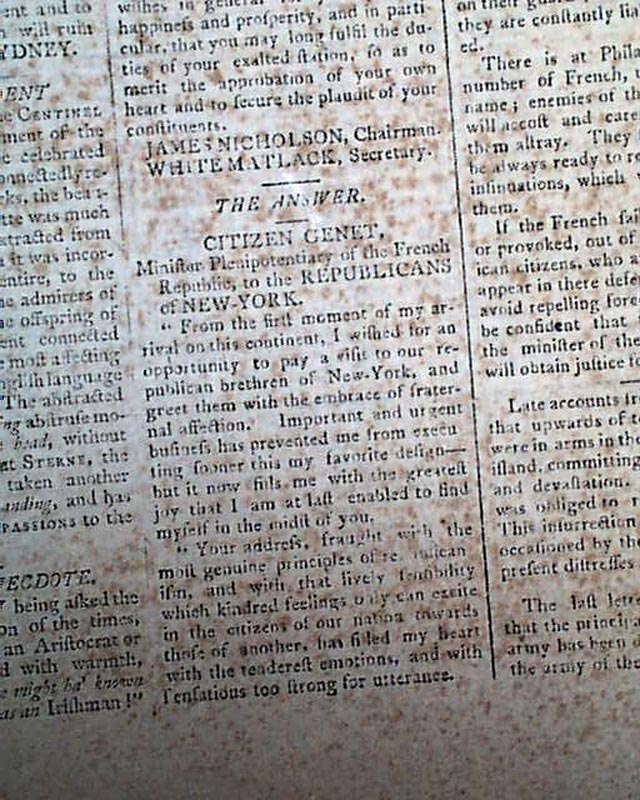 ent and to
will ruin
YDNEY.
ENT
e CENTINEL
ment of the
e celebrated
onnectedly re-
ks, the beau-
tte was much
stracted from
it was incor-
entire, to the
e admirers of
e offspring of
ent connected
e most affecting
nglish language
The abstracted
ng abstruse mo-
head, without
at STERNE, the
taken another
anding, and has
PASSIONS to the
ECDOTE.
being asked the
on of the times,
an Aristocrat or
d with warmth,
e might ha' known
as an Irishman!"
wishes in general
happiness and prosperity, and in parti-
cular, that you may long fulfil the du-
ties of your exalted station, so as to
merit the approbation of your own
heart and to secure the plaudit of your
constituents.
JAMES NICHOLSON, Chairman.
WHITE MATLACK, Secretary.
THE ANSWER.
CITIZEN GENET,
Minister Plenipotentiary of the French
Republic, to the REPUBLICANS
of NEW-YORK.
" From the first moment of my ar-
rival on this continent, I wished for an
opportunity to pay a visit to our re-
publican brethren of New-York, and
greet them with the embrace of frater-
nal affection. Important and urgent
business has prevented me from execu
ting sooner this my favorite design—
but it now fills me with the greatest
joy that I am at last enabled to find
myself in the midst of you.
" Your address, fraught with the
most genuine principles of republican
ism, and with that lively sensibility
which kindred feelings only can excite
in the citizens of our nation towards
those of another, has filled my heart
with the tenderest emotions, and with
sensatious too strong for utterance.
on their guard
they are constantly
ed.
There is at Phila
number of French,
name; enemies of th
will accost and care
them astray. They
be always ready to re
insinuations, which
them.
If the French
or provoked, out of
ican citizens, who a
appear in there defe
avoid repelling forc
be confident that
the minister of the
will obtain justice
Late accounts fr
that upwards of
were in arms in the
island, committing
and devastation.
was obliged to
This insurrection
occasioned by the
present distresses
The last lette
that the princip
army has been
the army of the